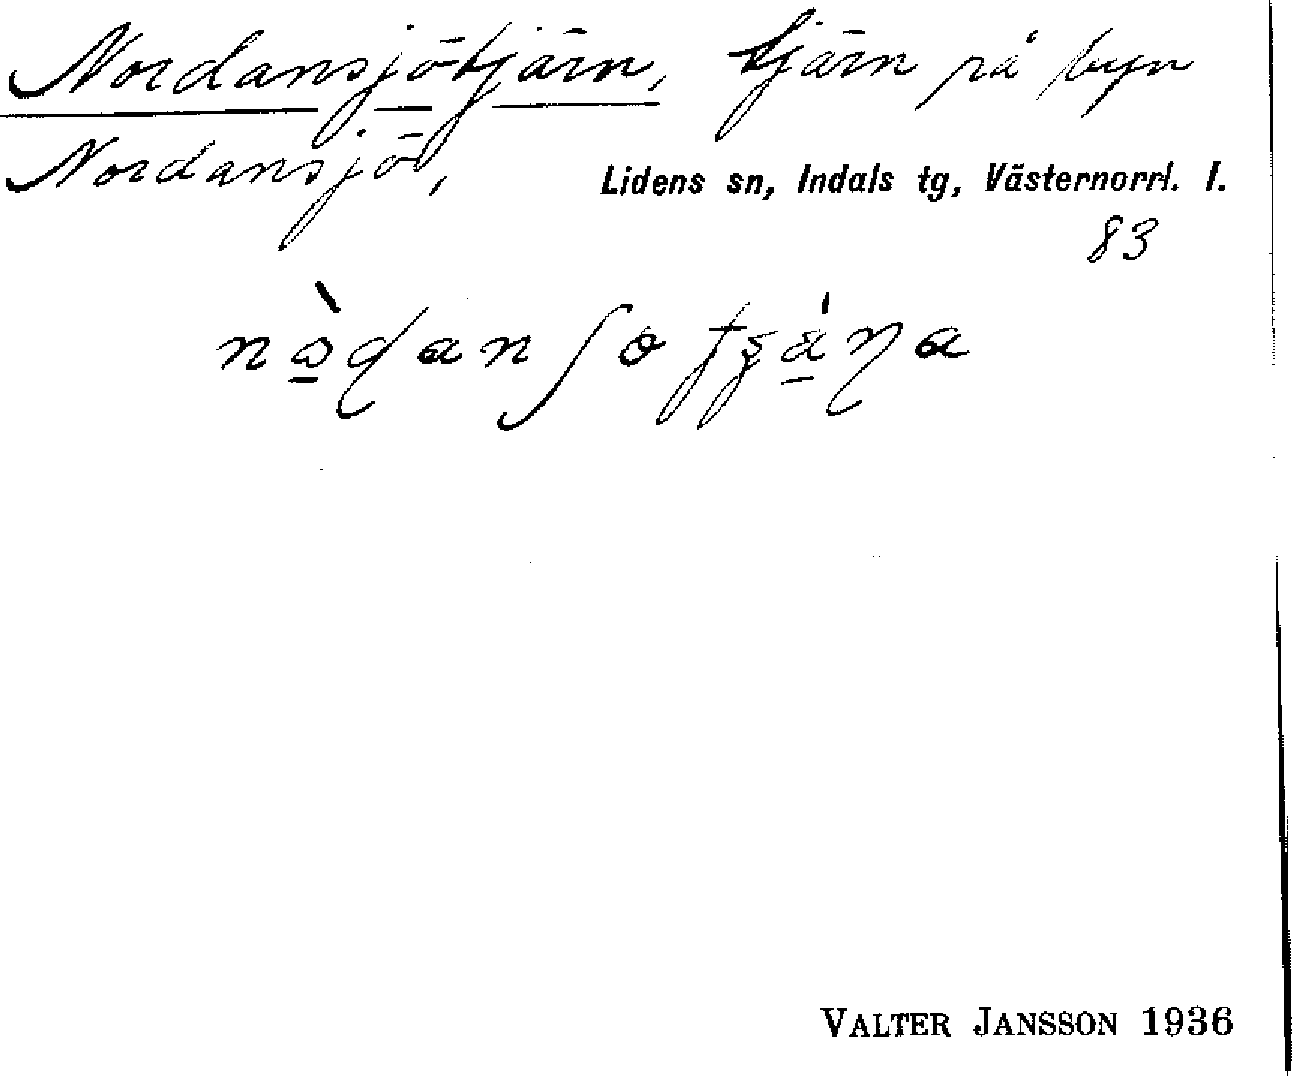 Nordansjötjärn, tjärn på byn
Nordansjö,
Lidens sn, Indals tg, Västernorrl. l.
83
VALTER JANSSON 1936